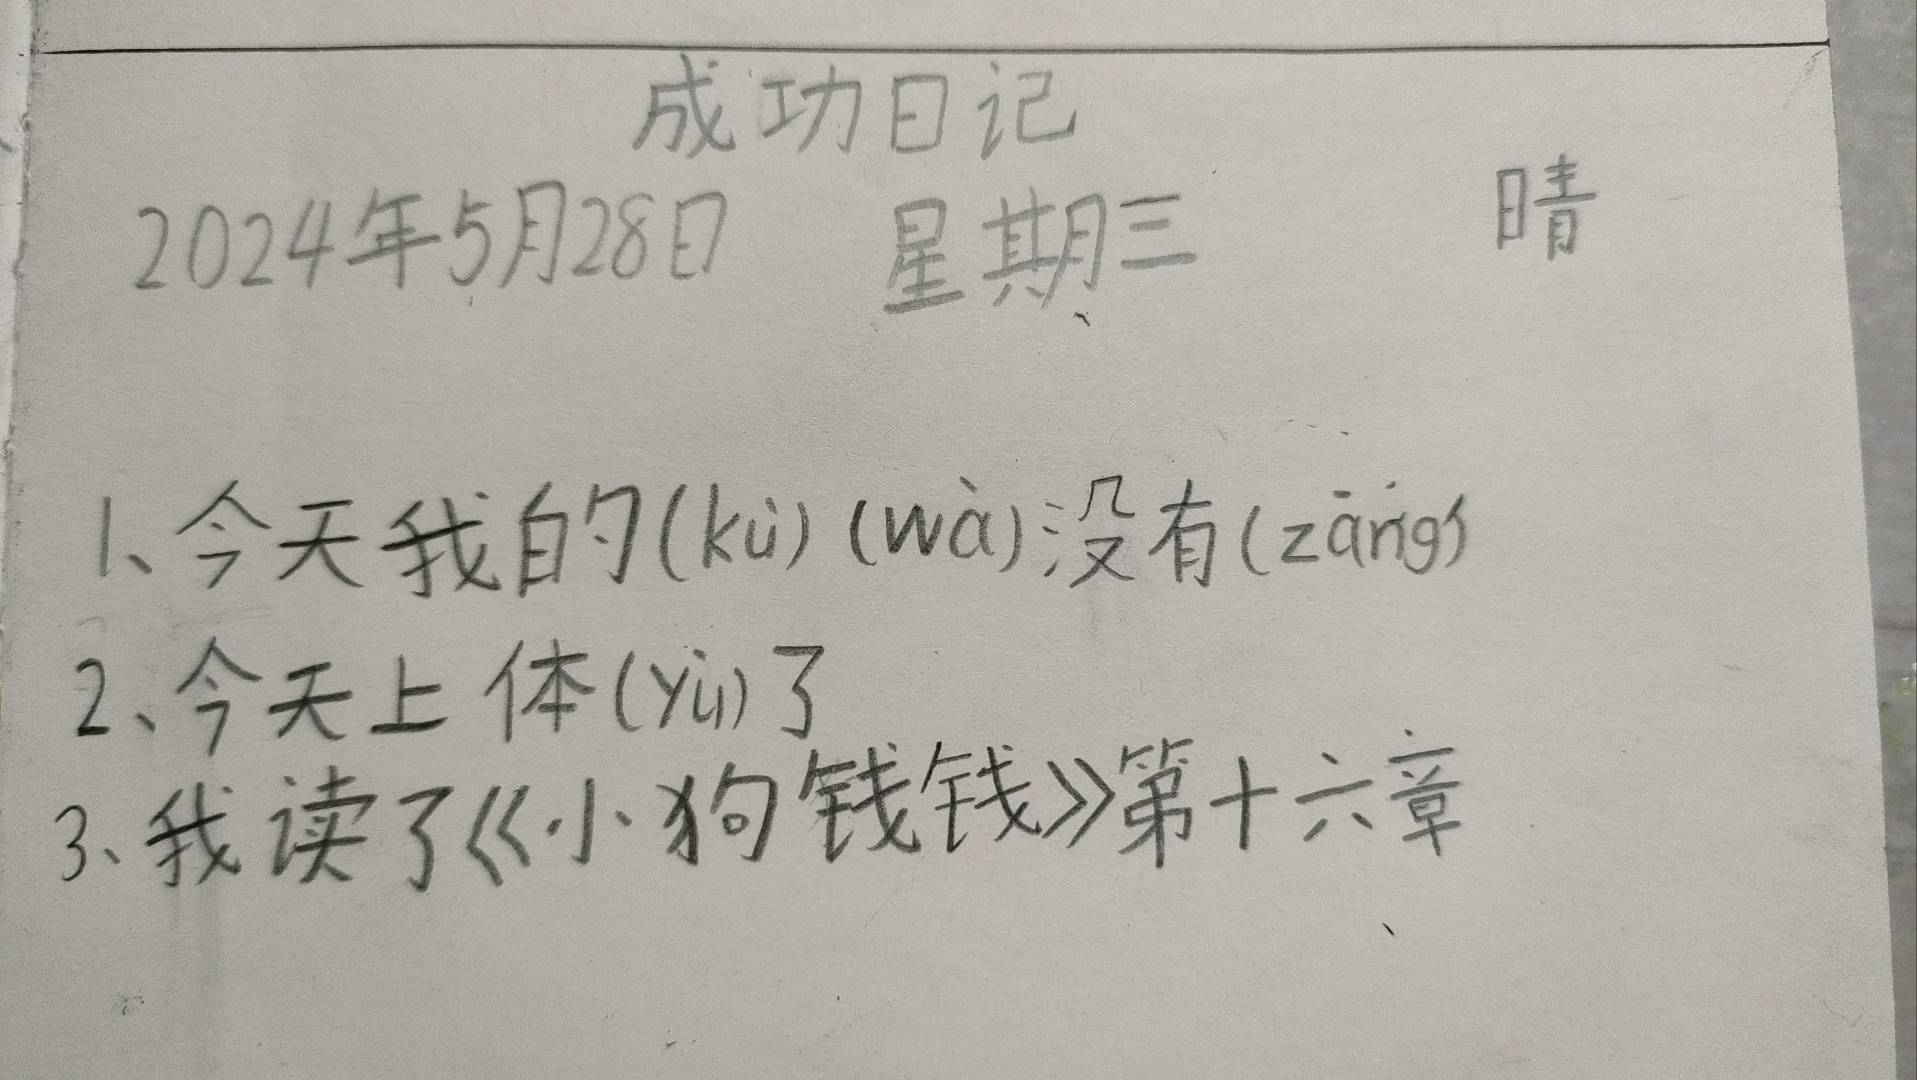 成功日记
2024年5月28日 星期三 晴
1、今天我的(kù)(wà)没有(zāng)
2、今天上体(yù)了
3、我读了《小狗钱钱》第十六章